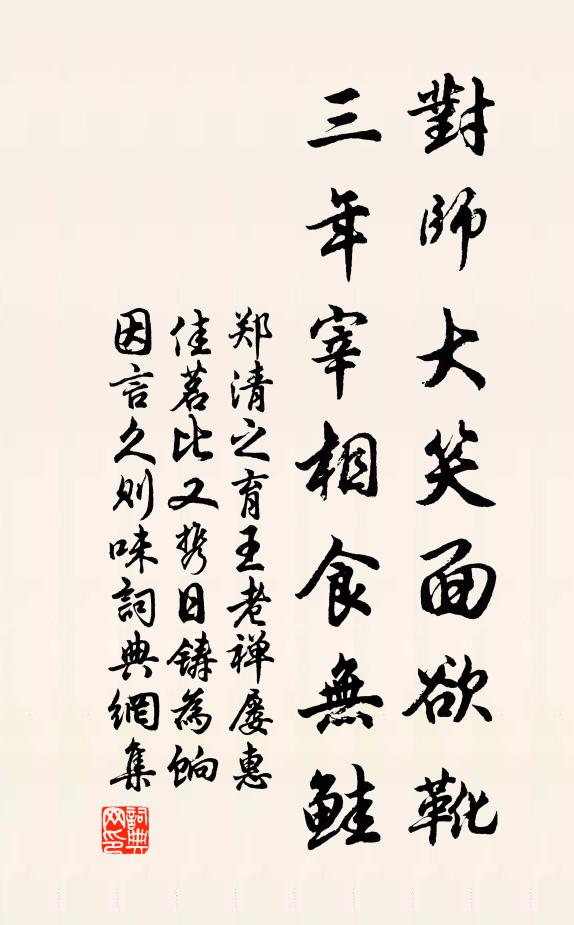 對師大笑面欲靴
三年宰相食無鮭
郑清之育王老禅屡惠
佳茗比又携日鋳為餉
因言久则味詞典網集
詞典网印